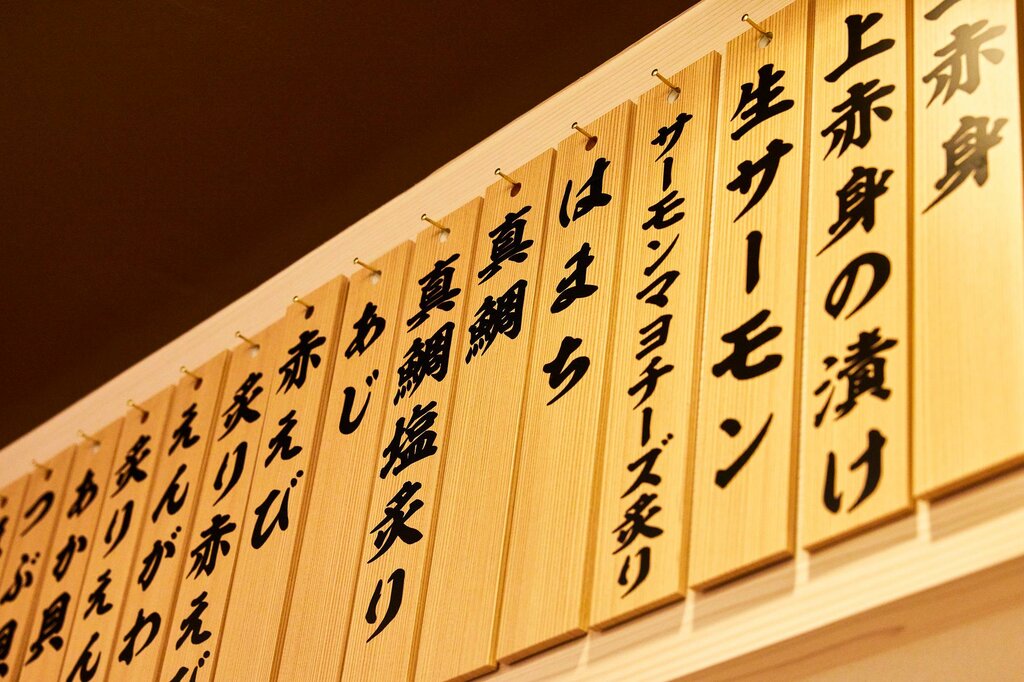 赤身
上赤身の漬け
生サーモン
サーモンマヨチーズ炙り
はまち
真鯛
真鯛塩炙り
あじ
赤えび
炙り赤えび
えんがわ
炙りえん
あか貝
つぶ貝